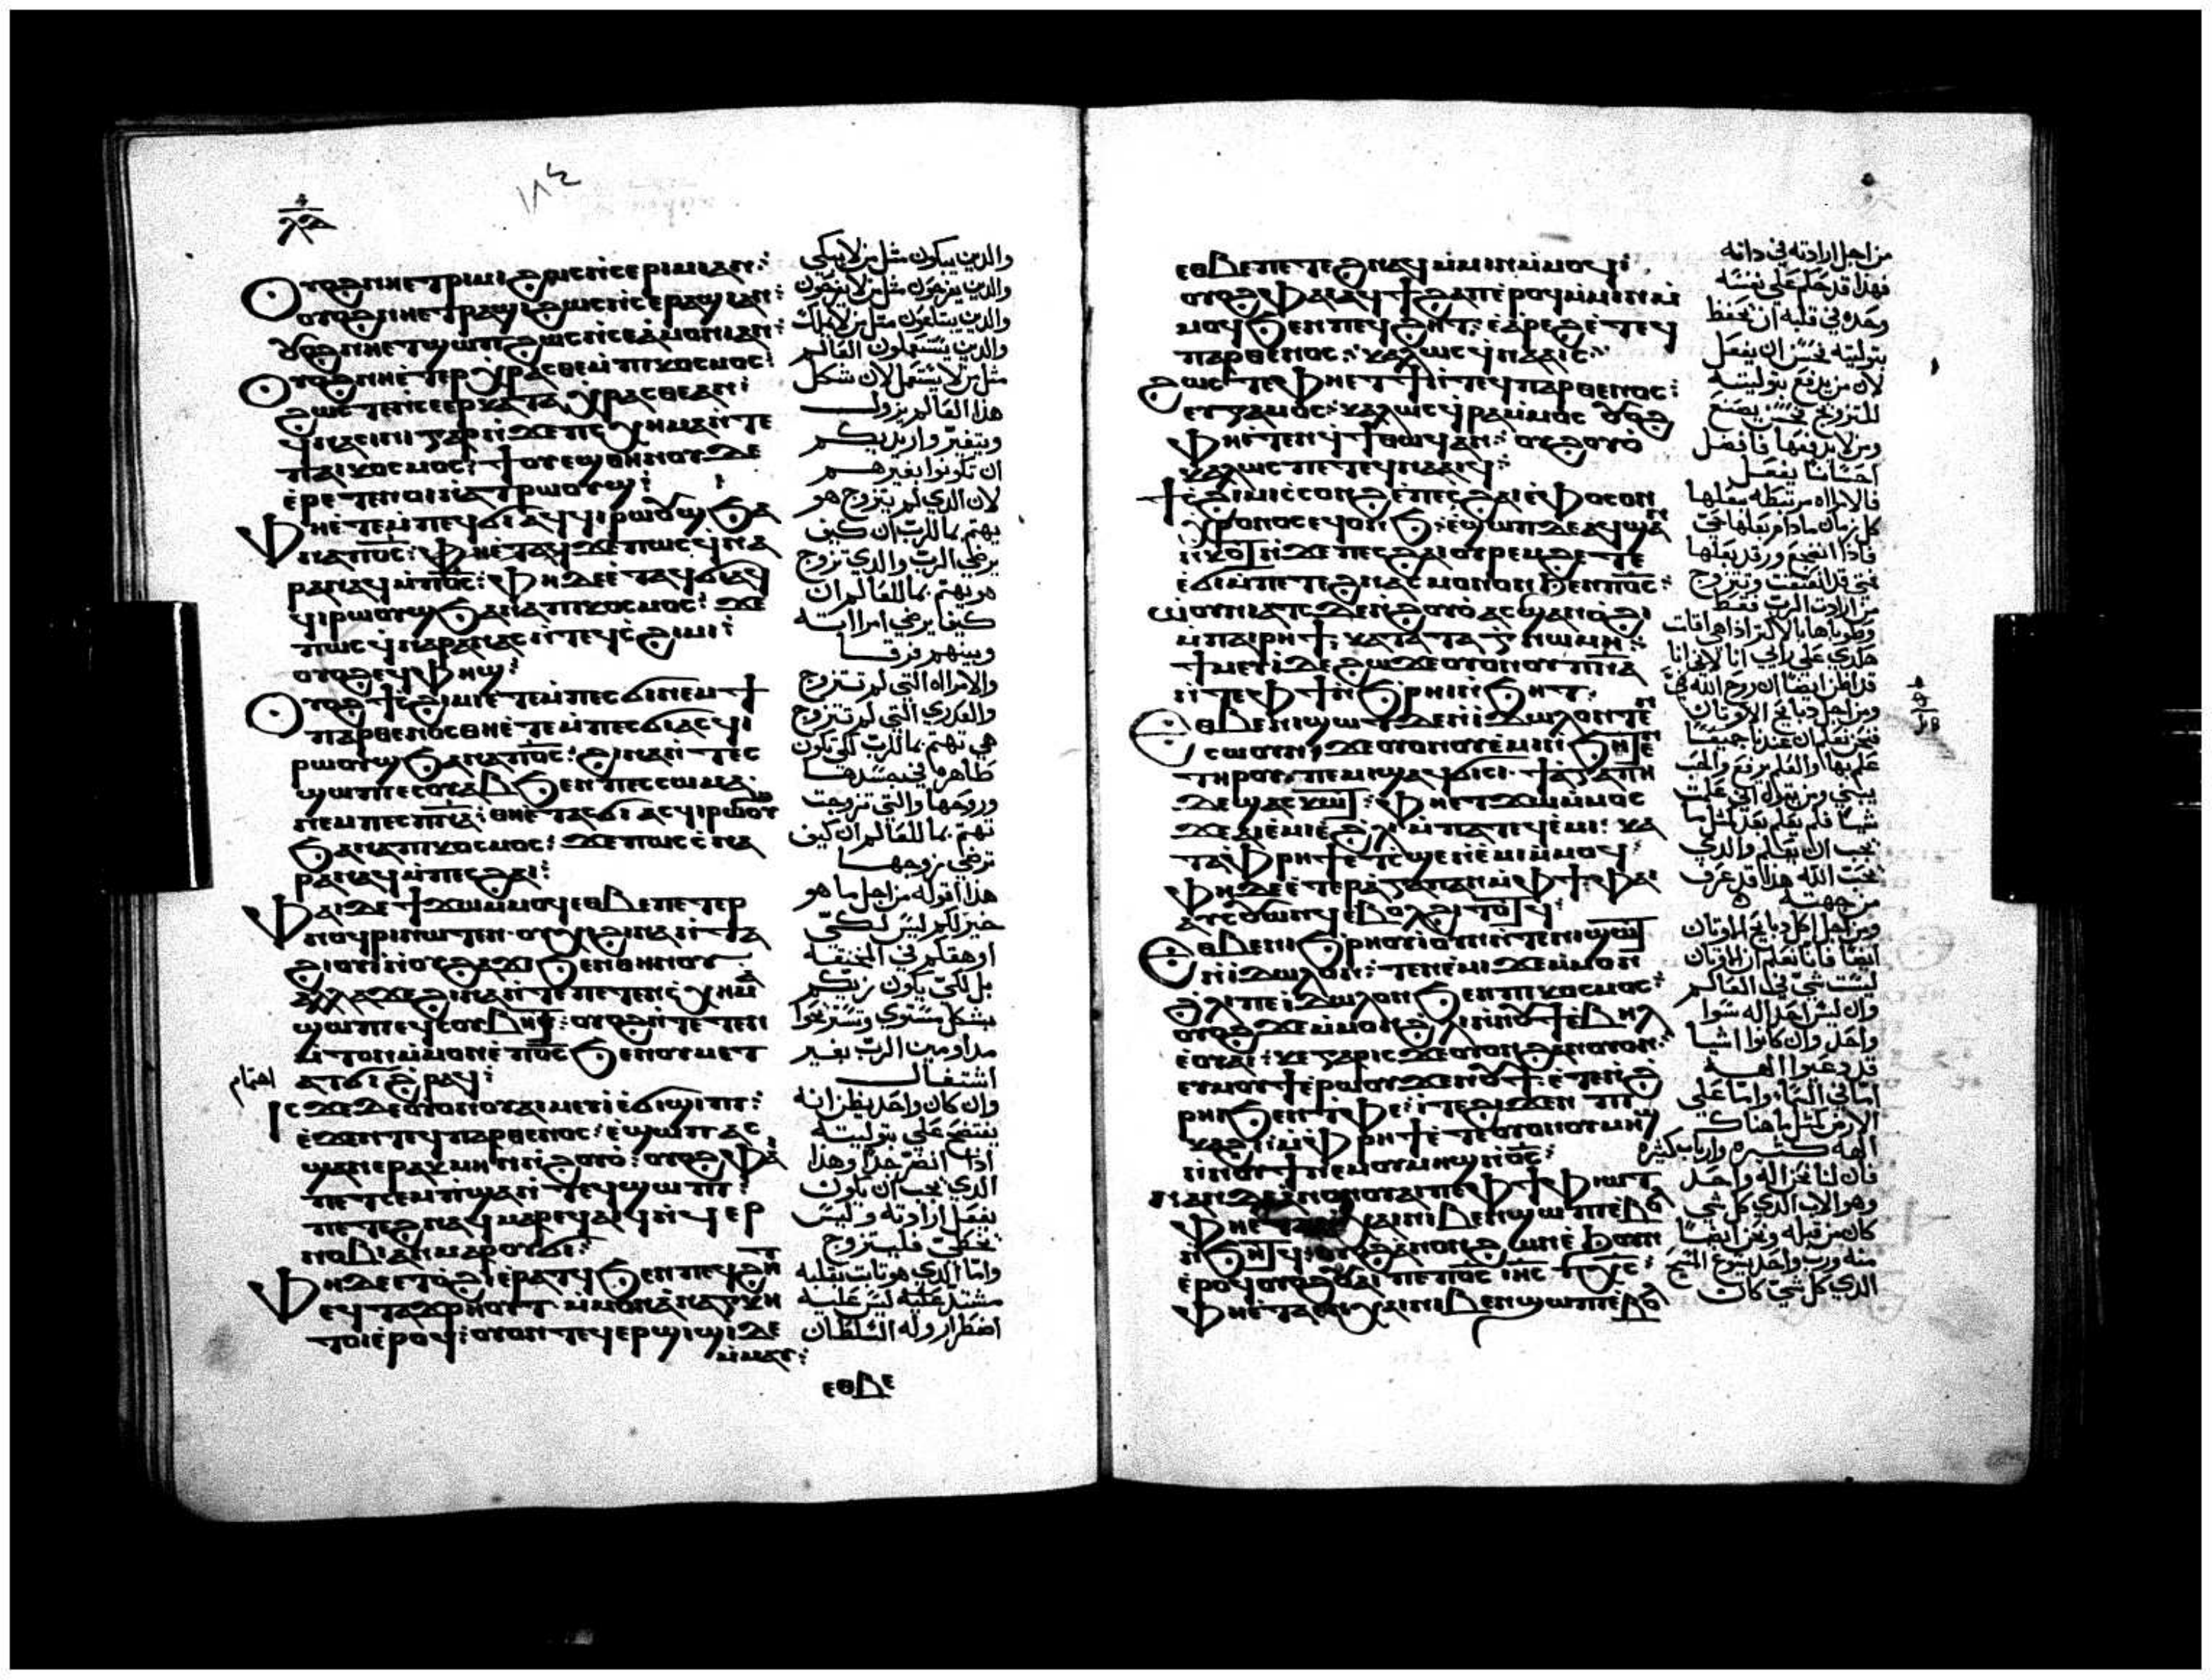 ⲟⲩⲟϩ ⲛⲏⲉⲧⲣⲓⲙⲓ ϩⲱⲥ ⲛⲥⲉⲣⲓⲙⲓ ⲁⲛ:
ⲟⲩⲟϩ ⲛⲏⲉⲧⲣⲁϣⲓ ϩⲱⲥ ⲛⲥⲉⲣⲁϣⲓ ⲁⲛ:
ⲟⲩⲟϩ ⲛⲏⲉⲧϣⲱⲡ ϩⲱⲥ ⲛⲥⲉⲁⲙⲟⲛⲓ ⲁⲛ:
ⲟⲩⲟϩ ⲛⲏⲉⲧⲉⲣⲭⲣⲁⲥⲑⲉ ⲙⲡⲓⲕⲟⲥⲙⲟⲥ:
ϩⲱⲥ ⲛⲥⲉⲉⲣⲕⲁⲧⲁⲭⲣⲁⲥⲑⲉ ⲁⲛ:
ϥⲛⲁⲥⲓⲛⲓ ⲅⲁⲣ ⲛϫⲉ ⲡⲥⲭⲏⲙⲁ ⲛⲧⲉ
ⲡⲁⲓⲕⲟⲥⲙⲟⲥ: ϯⲟⲩⲉϣ ⲑⲏⲛⲟⲩ ⲇⲉ
ⲉⲣⲉⲧⲉⲛⲟⲓ ⲛⲁⲧⲣⲱⲟⲩϣ:
ⲫⲏⲉⲧⲉⲙⲡⲉϥϭⲓ ⲁϥϥⲓⲣⲱⲟⲩϣ ϧⲁ
ⲛⲁⲡⲟ̅ⲥ̅: ϫⲉ ⲡⲱⲥ ϥⲛⲁ
ⲣⲁⲛⲁϥ ⲙⲡⲟ̅ⲥ̅: ⲫⲏ ⲇⲉ ⲉⲧⲁϥϭⲓ ⲁϥ
ϥⲓⲣⲱⲟⲩϣ ϧⲁ ⲛⲁ ⲡⲓⲕⲟⲥⲙⲟⲥ: ϫⲉ
ⲡⲱⲥ ϥⲛⲁⲣⲁⲛⲁⲥ ⲛⲧⲉϥⲥϩⲓⲙⲓ:
ⲟⲩⲟϩ ⲉϥⲫⲏϣ:
ⲟⲩⲟϩ ϯⲥϩⲓⲙⲓ ⲉⲧⲉⲙⲡⲉⲥϭⲓ ⲛⲉⲙ ϯ
ⲡⲁⲣⲑⲉⲛⲟⲥ ⲑⲏⲉⲧⲉⲙⲡⲉⲥϭⲓ ⲁⲥϥⲓ
ⲣⲱⲟⲩϣ ϧⲁ ⲛⲁⲡⲟ̅ⲥ̅: ϩⲓⲛⲁ ⲛⲧⲉⲥ
ϣⲱⲡⲓ ⲉⲥⲟⲩⲁⲃ ϧⲉⲛ ⲡⲉⲥⲥⲱⲙⲁ
ⲛⲉⲙ ⲡⲉⲥⲡ̅ⲛ̅ⲁ̅: ⲑⲏ ⲉⲧⲁⲥϭⲓ ⲁⲥϥⲓⲣⲱⲟⲩϣ
ϧⲁ ⲛⲁ ⲡⲓⲕⲟⲥⲙⲟⲥ: ϫⲉ ⲡⲱⲥ ⲥⲛⲁ
ⲣⲁⲛⲁϥ ⲙⲡⲉⲥϩⲁⲓ:
ⲫⲁⲓ ⲇⲉ ϯϫⲱ ⲙⲙⲟϥ ⲉⲑⲃⲉ ⲡⲉⲧⲉⲣ
ⲛⲟϥⲣⲓ ⲛⲱⲧⲉⲛ· ⲟⲩⲭ ϩⲓⲛⲁ ⲛⲧⲁ
ϩⲓⲟⲩⲓ ⲛⲟⲩϩⲁϫⲓ ϧⲉⲛ ⲑⲏⲛⲟⲩ
ⲁⲗⲗⲁ ϫⲉ ϩⲓⲛⲁ ⲛⲧⲉ ⲡⲉⲧⲉⲛⲥⲭⲏⲙⲁ
ϣⲱⲡⲓ ⲉϥⲥⲟⲩⲃⲏϥ: ⲟⲩⲟϩ ⲛⲧⲉⲧⲉⲛ
ⲙⲧⲟⲛ ⲙⲙⲟⲛ ⲉⲡⲟ̅ⲥ̅ ϧⲉⲛ ⲟⲩⲙⲉⲧ
ⲁⲧϭⲓϩⲣⲁϥ:
ⲓⲥϫⲉ ⲇⲉ ⲟⲩⲟⲛ ⲟⲩⲁⲓ ⲙⲉⲩⲓ ⲉϭⲓϣⲓⲡⲓ:
ⲉϫⲉⲛ ⲧⲉϥⲡⲁⲣⲑⲉⲛⲟⲥ: ⲉϣⲱⲡ ⲁⲥ
ϣⲁⲛⲉⲣⲁⲕⲙⲏ ⲛϩⲟⲩⲟ: ⲟⲩⲟϩ ⲫⲁⲓ
ⲡⲉⲧⲥⲉⲙⲡϣⲁ ⲛⲧⲉϥϣⲱⲡⲓ:
ⲡⲉⲧⲉϩⲛⲁϥ ⲙⲁⲣⲉϥⲁⲓϥ ⲛϥⲉⲣ
ⲛⲟⲃⲓ ⲁⲛ ⲙⲁⲣⲟⲩϭⲓ:
ⲫⲏ ⲇⲉ ⲉⲧⲟϩⲓ ⲉⲣⲁⲧϥ ϧⲉⲛ ⲡⲉϥϩⲏⲧ
ⲉϥⲧⲁϫⲣⲏⲟⲩⲧ ⲙⲙⲟⲛ ⲁⲛⲁⲅⲕⲏ
ⲧⲟⲓ ⲉⲣⲟϥ: ⲟⲩⲟⲛ ⲧⲉϥⲉⲣϣⲓϣⲓ ⲇⲉ
ⲙⲙⲁⲩ:
ⲉⲑⲃⲉ
والدين يبكون مثل من لا يبكي
والدين يفرحون مثل من لا يفرحون
والدين يبتاعون مثل من لا يملك
والدين يستعملون العالم
مثل من لا يستعمل لان شكل
هذا العالم يزول
ويتغير واريد بكم
ان تكونوا بغير هم
لان الدي لم يتزوج هو
يهتم بما للرب ان كيف
يرضي الرب والدي تزوج
هو يهتم بما للعالم ان
كيف يرضي امراته
وبينهم فرقا
والامراه التي لم تتزوج
والعدري التي لم تتزوج
هي تهتم بما للرب لكي تكون
طاهره في جسدها
وروحها والتي تزوجت
تهتم بما للعالم ان كيف
ترضي زوجها
هذا اقوله من اجل ما هو
خير لكم ليس لكي
اوهقكم في الخنقه
بل لكي يكون زيكم
بشكل مستوي وتستريحوا
مداومين الرب بغير
اشتغال
اهتمام
وان كان واحد يظن انه
يفتضح علي بتوليته
ادا انصر جدا وهذا
الدي يجب ان يكون
يفعل ارادته وليس
يخطي فليتزوج
واما الدي هو ثابت بقلبه
مشتد عليه ليس عليه
اضطرار وله السلطان
ⲉⲑⲃⲉ ⲡⲉⲧⲉϩⲛⲁϥ ⲙⲙⲓⲛ ⲙⲙⲟϥ:
ⲟⲩⲟϩ ⲫⲁⲓ ⲁϥϯϩⲁⲡ ⲉⲣⲟϥ ⲙⲙⲓⲛ ⲙ
ⲙⲟϥ ϧⲉⲛ ⲡⲉϥϩⲏⲧ: ⲉⲁⲣⲉϩ ⲉⲧⲉϥ
ⲡⲁⲣⲑⲉⲛⲟⲥ: ⲕⲁⲗⲱⲥ ϥⲛⲁⲁⲓⲥ:
ϩⲱⲥⲧⲉ ⲫⲏⲉⲧϯ ⲛⲧⲉϥⲡⲁⲣⲑⲉⲛⲟⲥ:
ⲉⲩⲅⲁⲙⲟⲥ: ⲕⲁⲗⲱⲥ ϥⲣⲁ ⲙⲙⲟⲥ ⲟⲩⲟϩ
ⲫⲏⲉⲧⲉⲛϥϯ ⲑⲱϥ ⲁⲛ: ⲟⲩϩⲟⲩⲟ
ⲕⲁⲗⲱⲥ ⲡⲉⲧⲉϥⲛⲁⲁⲓϥ:
ϯⲥϩⲓⲙⲓ ⲥⲟⲛϩ ⲉⲡⲉⲥϩⲁⲓ ⲉⲫⲟⲥⲟⲛ
ⲭⲣⲟⲛⲟⲥ ⲉϥⲟⲛϧ: ⲉϣⲱⲡ ⲇⲉ ⲁϥϣⲁⲛ
ⲛⲕⲟⲧ ⲛϫⲉ ⲡⲉⲥϩⲁⲓ ⲟⲩⲣⲉⲙϩⲉ ⲧⲉ
ⲉϭⲓ ⲙⲡⲉⲧⲉϩⲛⲁⲥ ⲙⲟⲛⲟⲛ ϧⲉⲛ ⲡⲟ̅ⲥ̅:
ⲱⲟⲩⲛⲓⲁⲧⲥ ⲇⲉ ⲛϩⲟⲩⲟ ⲁⲥϣⲁⲛⲟϩⲓ
ⲙⲡⲁⲓⲣⲏϯ: ⲕⲁⲧⲁ ⲧⲁⲅⲛⲱⲙⲏ:
ϯⲙⲉⲩⲓ ⲇⲉ ϩⲱ ϫⲉ ⲟⲩⲟⲛ ⲟⲩⲡ̅ⲛ̅ⲁ̅
ⲛⲧⲉ ⲫϯ ⲛϧⲣⲏⲓ ⲛϧⲏⲧ:
ⲉⲑⲃⲉ ⲛⲓϣⲱⲧ ⲇⲉ ⲛⲓⲇⲱⲗⲟⲛ ⲧⲉⲛ
ⲥⲱⲟⲩⲛ: ϫⲉ ⲟⲩⲟⲛ ⲟⲩⲉⲙⲓ ⲛϧⲏⲧⲉⲛ
ⲧⲏⲣⲟⲩ ⲡⲉⲙⲓ ϣⲁϥϭⲓⲥⲓ· ϯⲁⲅⲁⲡⲏ
ⲇⲉ ϣⲁⲥⲕⲱⲧ: ⲫⲏⲉⲧϫⲱ ⲙⲙⲟⲥ
ϫⲉ ⲁⲓⲉⲙⲓ ⲉϩⲗⲓ ⲙⲡⲁⲧⲉϥⲉⲙⲓ: ⲕⲁ
ⲧⲁ ⲫⲣⲏϯ ⲉⲧⲥϣⲉ ⲛⲉⲙⲓ ⲙⲙⲟϥ:
ⲫⲏ ⲇⲉ ⲉⲧⲉⲣⲁⲅⲁⲡⲁⲛ ⲙⲫϯ: ⲫⲁⲓ
ⲁⲩⲥⲟⲩⲱⲛϥ ⲉⲃⲟⲗ ϩⲓⲧⲟⲧϥ:
ⲉⲑⲃⲉ ⲛⲓϧⲣⲏⲟⲩⲓ ⲟⲩⲛ ⲛⲧⲉ ⲛⲓϣⲱⲧ
ⲛⲓⲇⲱⲗⲟⲛ: ⲧⲉⲛⲉⲙⲓ ϫⲉ ⲙⲙⲟⲛ
ϩⲗⲓ ⲡⲉ ⲓⲇⲱⲗⲟⲛ ϧⲉⲛ ⲡⲓⲕⲟⲥⲙⲟⲥ:
ⲟⲩⲟϩ ϫⲉ ⲙⲙⲟⲛ ϩⲗⲓ ⲛⲛⲟⲩϯ ⲉⲃⲏⲗ
ⲉⲟⲩⲁⲓ: ⲕⲉ ⲅⲁⲣ ⲓⲥϫⲉ ⲟⲩⲟⲛ ϩⲁⲛⲟⲩⲟⲛ:
ⲉⲩⲙⲟⲩϯ ⲉⲣⲱⲟⲩ ϫⲉ ⲛⲟⲩϯ: ⲉⲓⲧⲉ ⲛϩ
ⲣⲏⲓ ϧⲉⲛ ⲧⲫⲉ: ⲓⲧⲉ ϩⲓϫⲉⲛ ⲡⲓ
ⲕⲁϩⲓ: ⲙⲫⲣⲏϯ ⲉⲧⲉ ⲟⲩⲟⲛ ⲟⲩⲙⲏϣ
ⲛⲛⲟⲩϯ ⲛⲉⲙ ⲟⲩⲙⲏϣ ⲛⲟ̅ⲥ̅:
ⲛⲁⲛ ⲇⲉ ⲁⲛⲟⲛ ⲟⲩⲁⲓ ⲡⲉ ⲫϯ ⲫⲓⲱⲧ
ⲫⲏⲉⲧⲁ ⲉⲛⲭⲁⲓ ⲛⲓⲃⲉⲛ ϣⲱⲡⲓ ⲉⲃⲟⲗ
ⲛϧⲏⲧϥ: ⲟⲩⲟϩ ⲁⲛⲟⲛ ϩⲱⲛ ⲉϧⲟⲩⲛ
ⲉⲣⲟϥ ⲟⲩⲟϩ ⲟⲩⲁⲓ ⲡⲉ ⲡⲟ̅ⲥ̅ ⲓⲏ̅ⲥ̅ ⲡⲭ̅ⲥ̅:
ⲫⲏⲉⲧⲁ ⲉⲛⲭⲁⲓ ⲛⲓⲃⲉⲛ ϣⲱⲡⲓ ⲉⲃⲟⲗ
من اجل ارادته في داته
فهذا قد حكم علي نفسه
وحده في قلبه ان يحفظ
بتوليته يحسن ان يفعل
لان من يدفع بتوليته
للتزويج يحسن يصنع
ومن لا يدفعها فافضل
احسانا يفعل
فالامراه مرتبطه ببعلها
كل زمان ما دام بعلها حي
فادا انضجع ورقد بعلها
فهي قد انعتقت وتتزوج
من ارادت بالرب فقط
وطوباها بالاكثر ادا هي اقامت
هكدي علي رايي انا لانني انا
قد اظن ايضا ان روح الله في
ومن اجل دبايح الاوثان
فنحن نعلم ان عندنا جميعا
علم بها والعلم يرفع والحب
يبني ومن يقول اني علمت
شيا فلم يعلم بعد كمثل ما
يجب ان يعلم والدي
يحب الله هذا قد عرف
من جهته
ومن اجل اكل دبايح الاوثان
ايضا فانا نعلم ان الاوثان
ليست شي في العالم
وان ليس احد اله سوا
واحد وان كانوا اشيا
قد دعيوا الهه
اما في السما واما علي
الارض كمثل ما هناك
الهه كثيره وارباب كثيره
فان لنا نحن اله واحد
وهو الاب الدي كل شي
كان من قبله ونحن ايضا
منه ورب واحد يسوع المسيح
الدي كل شي كان